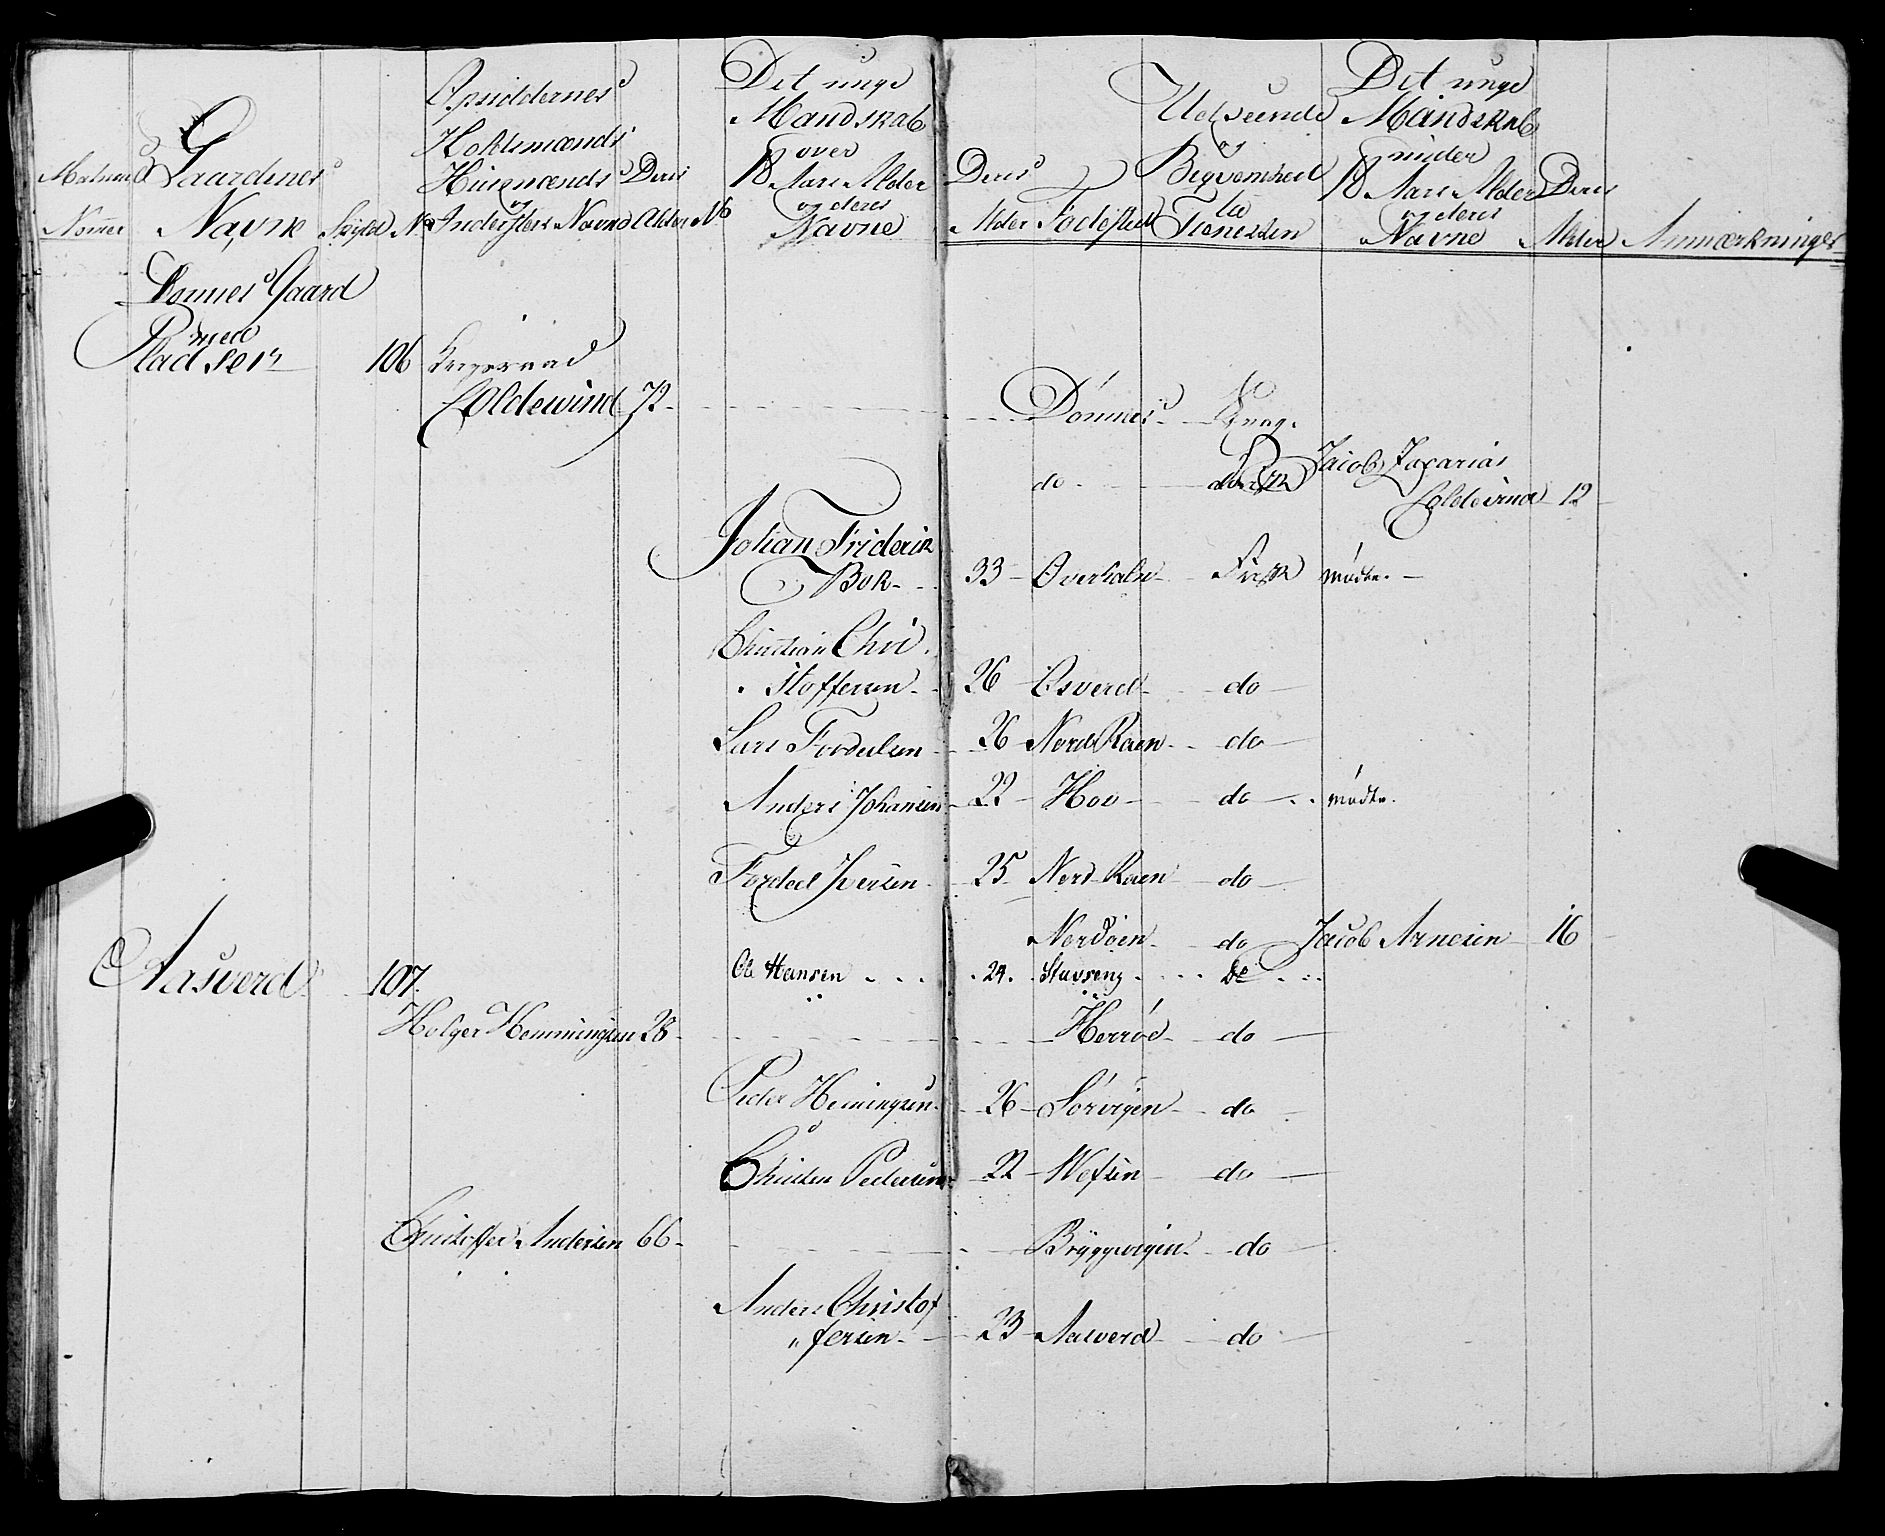 Matricul Nommer
Gaardenes Navne
Skyld
No
Opsiddernes
Holdsmænds
Huusmænds
og
Inderster Navne
Deris Alder
No
Det unge
Mandskab
over
18 Aars Alder
og deres
Navne
Deris Alder
Fødested
Udseende
og
Beqvemhed
til
Tienesten
Det unge
Mandskab
under
18 Aars Alder
og deres
Navne
Deris Alder
Anmærkninger
Dønnes Gaard
med
Pladser 106
Coldewind 72 Dønnes Svag.
do Jacob Zacarias
Coldevind 12
Johan Friderik
Bok 33 Overhalv Frisk mødte.
Christian Chri
stoffersen 26 Osverd do
Lars Tordelsen 26 Nord Raen do
Anders Johansen 22 Hov do mødte.
Tordel Iversen 25 Nord Raen do
Nordøen do Jacob Arnesen 16
Aasverd 107. Ole Hansen 24. Stavseng Do
Holger Hemmingsen 28 Herrøe do
Peder Hemingsen 26 Sørvigen do
Christen Pedersen 22 Wefsen do
Christoffer Andersen 66 Bryggevigen do
Anders Christof
fersen 23 Aasverd do